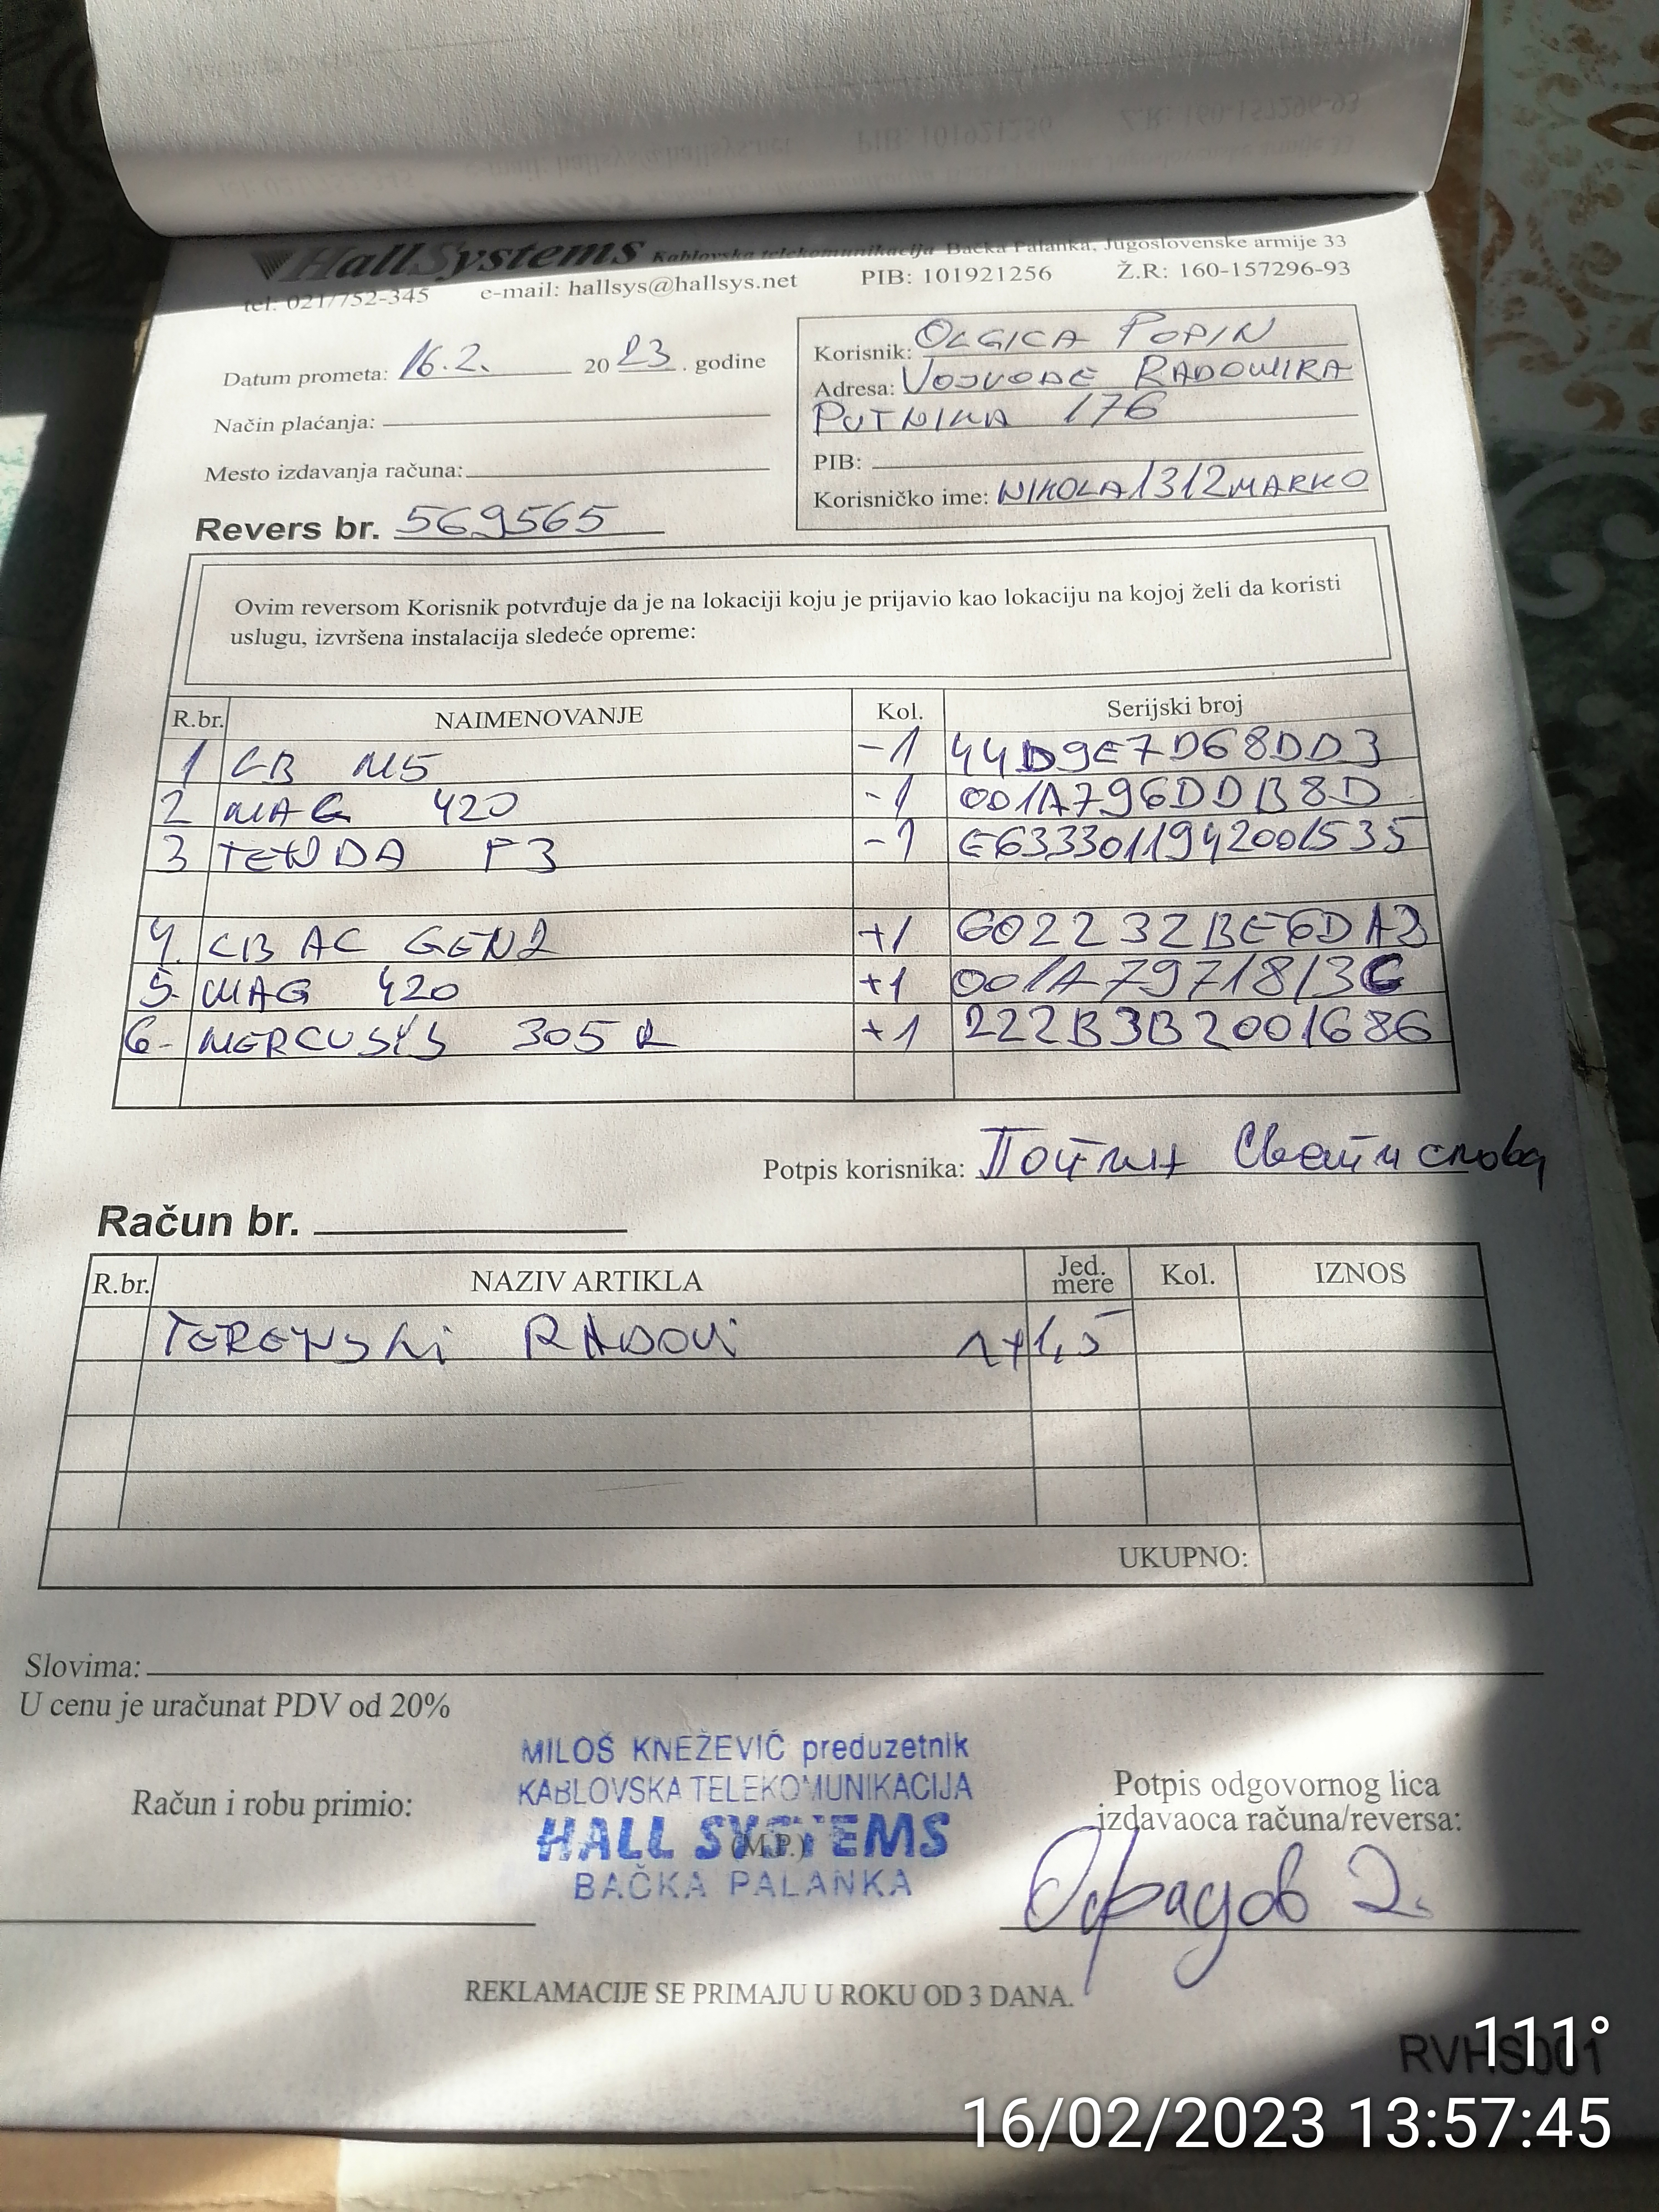 HallSystems Kablovska telekomunikacija Bačka Palanka, Jugoslovenske armije 33
tel: 021/752-345 e-mail: hallsys@hallsys.net PIB: 101921256 Ž.R: 160-157296-93
Datum prometa: 16.2. 2023. godine
Način plaćanja:
Mesto izdavanja računa:
Revers br. 569565
Korisnik: OLGICA POPIN
Adresa: VOJVODE RADOMIRA
PUTNIKA 176
PIB:
Korisničko ime: NIKOLA1312MARKO
Ovim reversom Korisnik potvrđuje da je na lokaciji koju je prijavio kao lokaciju na kojoj želi da koristi
uslugu, izvršena instalacija sledeće opreme:
R.br. NAIMENOVANJE Kol. Serijski broj
1 LB M5 -1 44D9E7D68DD3
2 MAG 420 -1 001A796DDB8D
3 TENDA F3 -1 E6333011942001535
4. LB AC GEN2 +1 602232BE6DA3
5. MAG 420 +1 001A7971813C
6- MERCUSYS 305R +1 222B3B2001686
Potpis korisnika:
Račun br.
R.br. NAZIV ARTIKLA Jed. mere Kol. IZNOS
TERENSKI RADOVI 1+1,5
UKUPNO:
Slovima:
U cenu je uračunat PDV od 20%
Račun i robu primio:
MILOŠ KNEŽEVIĆ preduzetnik
KABLOVSKA TELEKOMUNIKACIJA
HALL SYSTEMS
(M.P.)
BAČKA PALANKA
Potpis odgovornog lica
izdavaoca računa/reversa:
REKLAMACIJE SE PRIMAJU U ROKU OD 3 DANA.
RVHS001
111°
16/02/2023 13:57:45